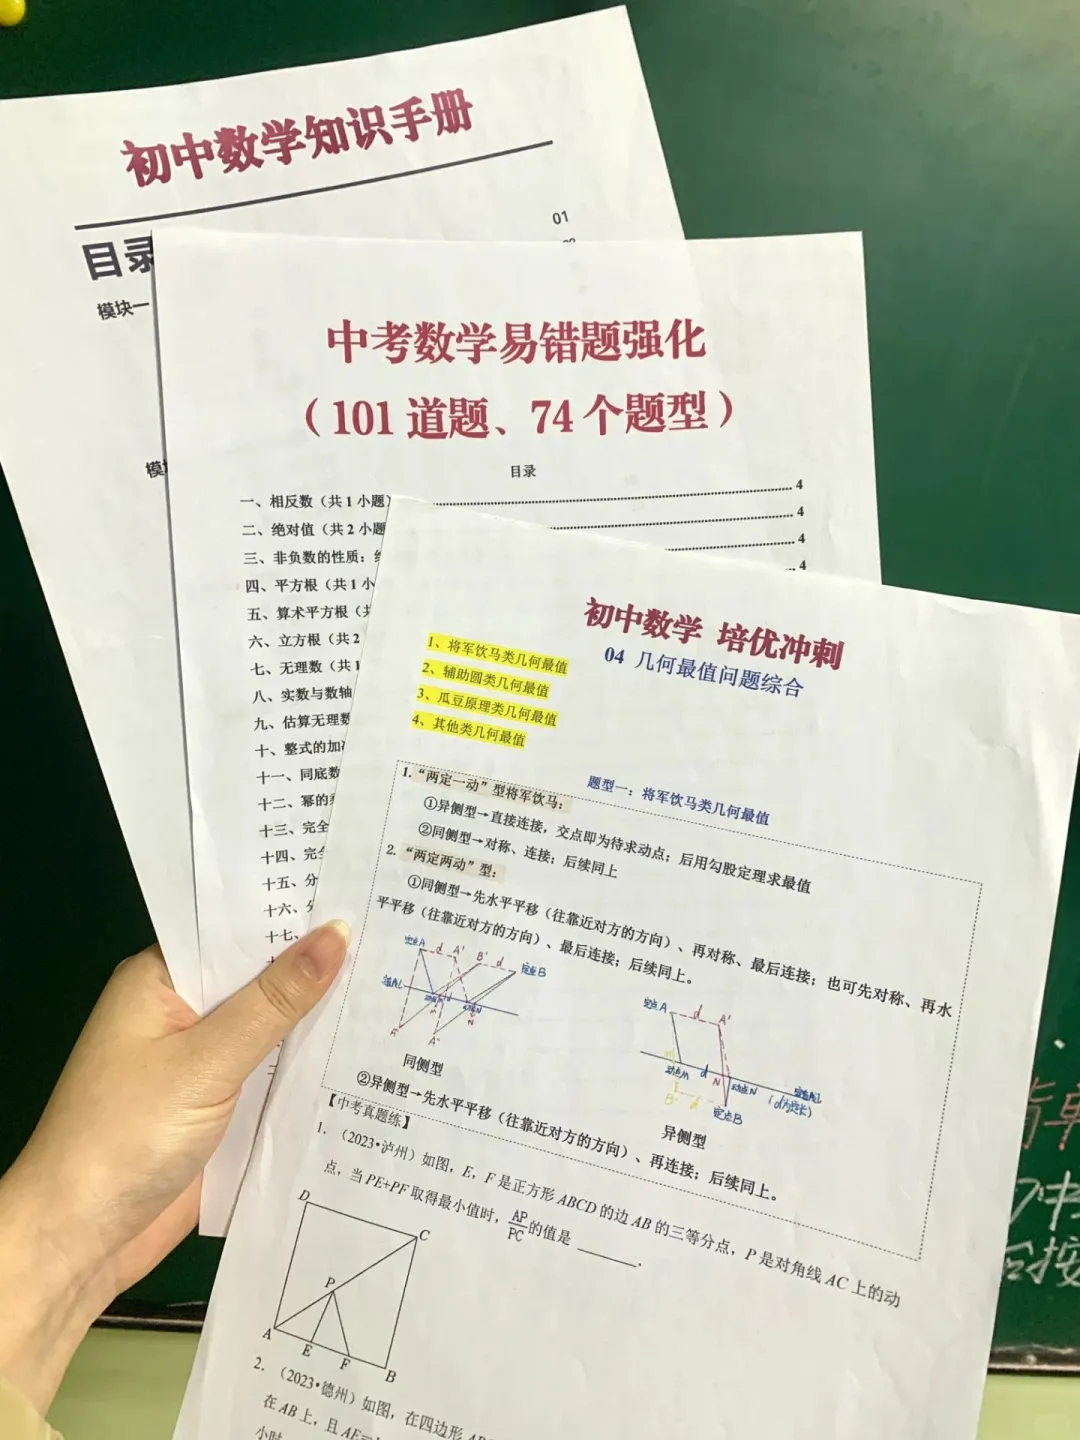 初中数学知识手册
目录
01
模块一
模
中考数学易错题强化
（101 道题、74 个题型）
目录
一、相反数（共 1 小题） 4
二、绝对值（共 2 小题 4
三、非负数的性质： 4
四、平方根（共 1 小 4
五、算术平方根（
六、立方根（共 2
七、无理数（共 1
八、实数与数轴
九、估算无理数
十、整式的加
十一、同底数
十二、幂的
十三、完全
十四、完全
十五、分
十六、
十七、
初中数学 培优冲刺
04 几何最值问题综合
1、将军饮马类几何最值
2、辅助圆类几何最值
3、瓜豆原理类几何最值
4、其他类几何最值
题型一：将军饮马类几何最值
1. “两定一动”型将军饮马：
①异侧型→直接连接，交点即为待求动点；后用勾股定理求最值
②同侧型→对称、连接；后续同上
2. “两定两动”型：
①同侧型→先水平平移（往靠近对方的方向）、再对称、最后连接；也可先对称、再水
平平移（往靠近对方的方向）、最后连接；后续同上。
定点A d A' B' d 定点B
A'
A''
同侧型
定点A d A'
动点M d N 动点N 定直线L
（d为定长）
B' d 定点B
异侧型
②异侧型→先水平平移（往靠近对方的方向）、再连接；后续同上。
【中考真题练】
1. （2023•泸州）如图，E，F 是正方形 ABCD 的边 AB 的三等分点，P 是对角线 AC 上的动
点，当 PE+PF 取得最小值时，AP/PC 的值是 ______.
D
C
P
A
E
F
B
2. （2023•德州）如图，在四边形
在 AB 上，且 AE=
小时
后按